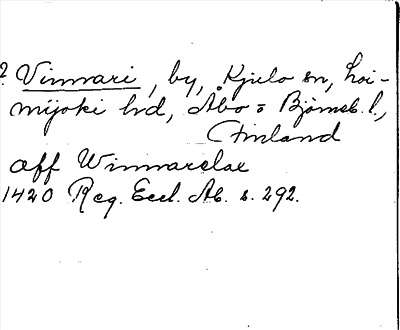 ? Vinnari, by, Kjulo sn, Loi-
mijoki hd, Åbo = Björneb. l.,
Finland
aff Winnarelax
1420 Reg. Eccl. Ab. s. 292.